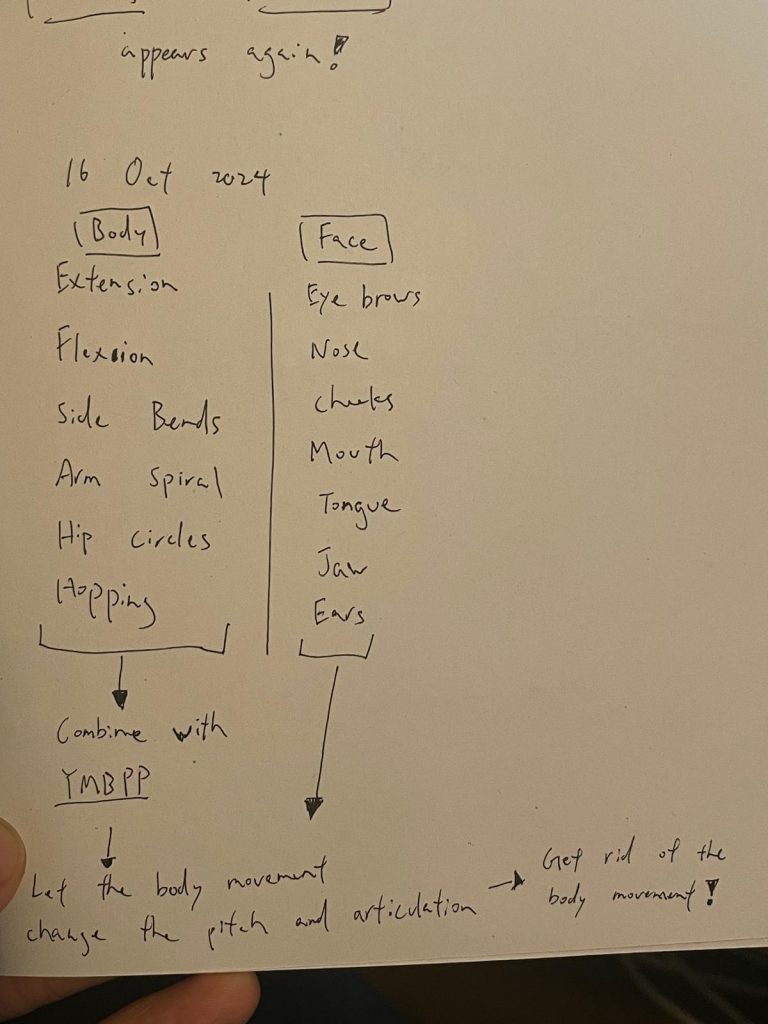 appears again!
16 Oct 2024
Body
Extension
Flexion
Side Bends
Arm Spiral
Hip circles
Hopping
Face
Eye brows
Nose
cheeks
Mouth
Tongue
Jaw
Ears
Combine with
YMBPP
Let the body movement
change the pitch and articulation
Get rid of the
body movement!